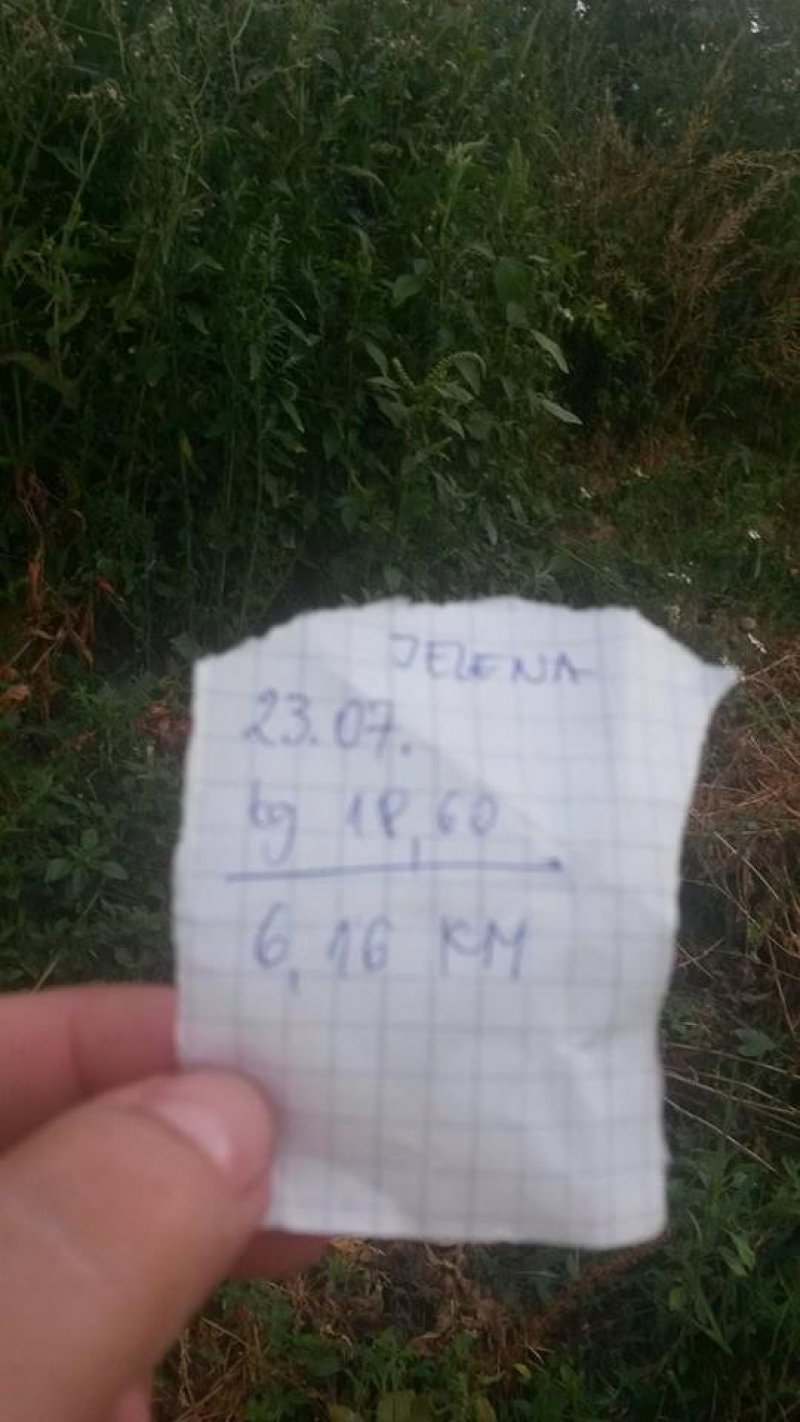 JELENA
23.07.
bg 18,60
6,16 KM